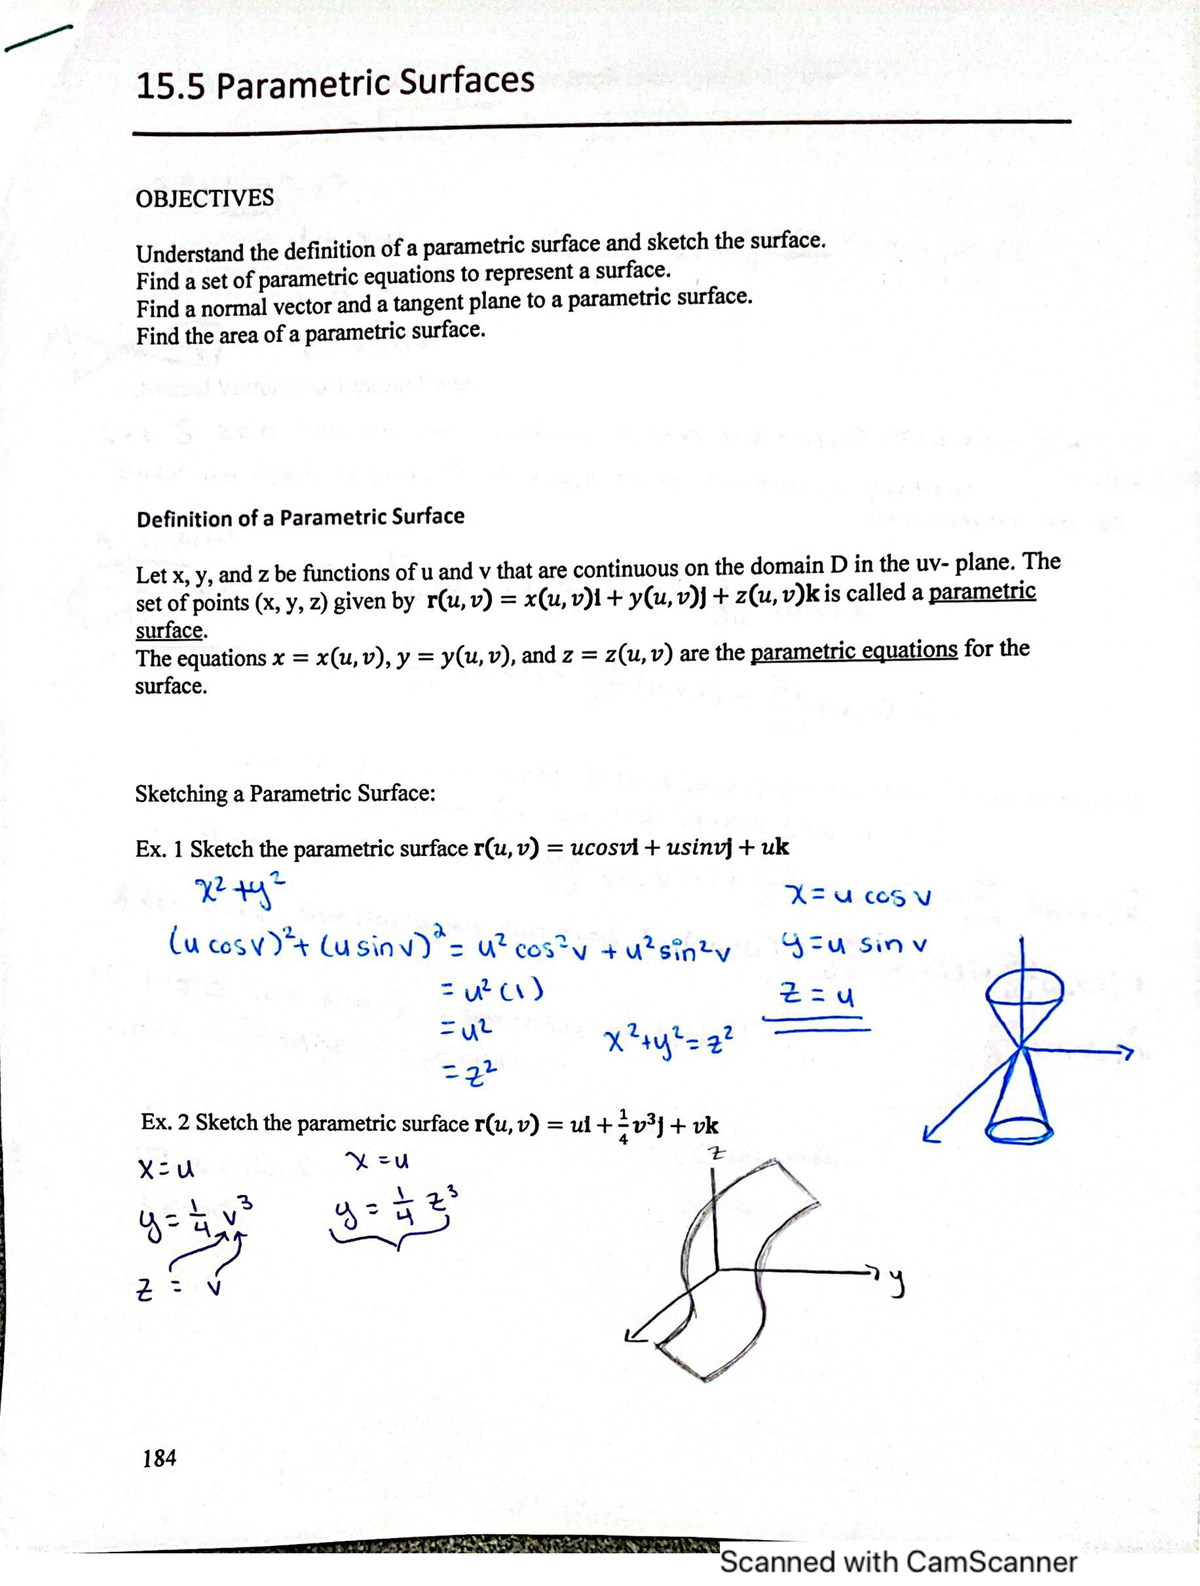 15.5 Parametric Surfaces
OBJECTIVES
Understand the definition of a parametric surface and sketch the surface.
Find a set of parametric equations to represent a surface.
Find a normal vector and a tangent plane to a parametric surface.
Find the area of a parametric surface.
Definition of a Parametric Surface
Let x, y, and z be functions of u and v that are continuous on the domain D in the uv- plane. The
set of points (x, y, z) given by r(u, v) = x(u, v)i + y(u, v)j + z(u, v)k is called a parametric
surface.
The equations x = x(u, v), y = y(u, v), and z = z(u, v) are the parametric equations for the
surface.
Sketching a Parametric Surface:
Ex. 1 Sketch the parametric surface r(u, v) = ucosvi + usinvj + uk
x² + y²
x = u cos v
(u cos v)² + (u sin v)² = u² cos² v + u² sin² v
y = u sin v
= u² (1)
z = u
= u²
x² + y² = z²
= z²
Ex. 2 Sketch the parametric surface r(u, v) = ui + 1/4 v³j + vk
x = u
x = u
z
y = 1/4 v³
y = 1/4 z³
z = v
y
184
Scanned with CamScanner